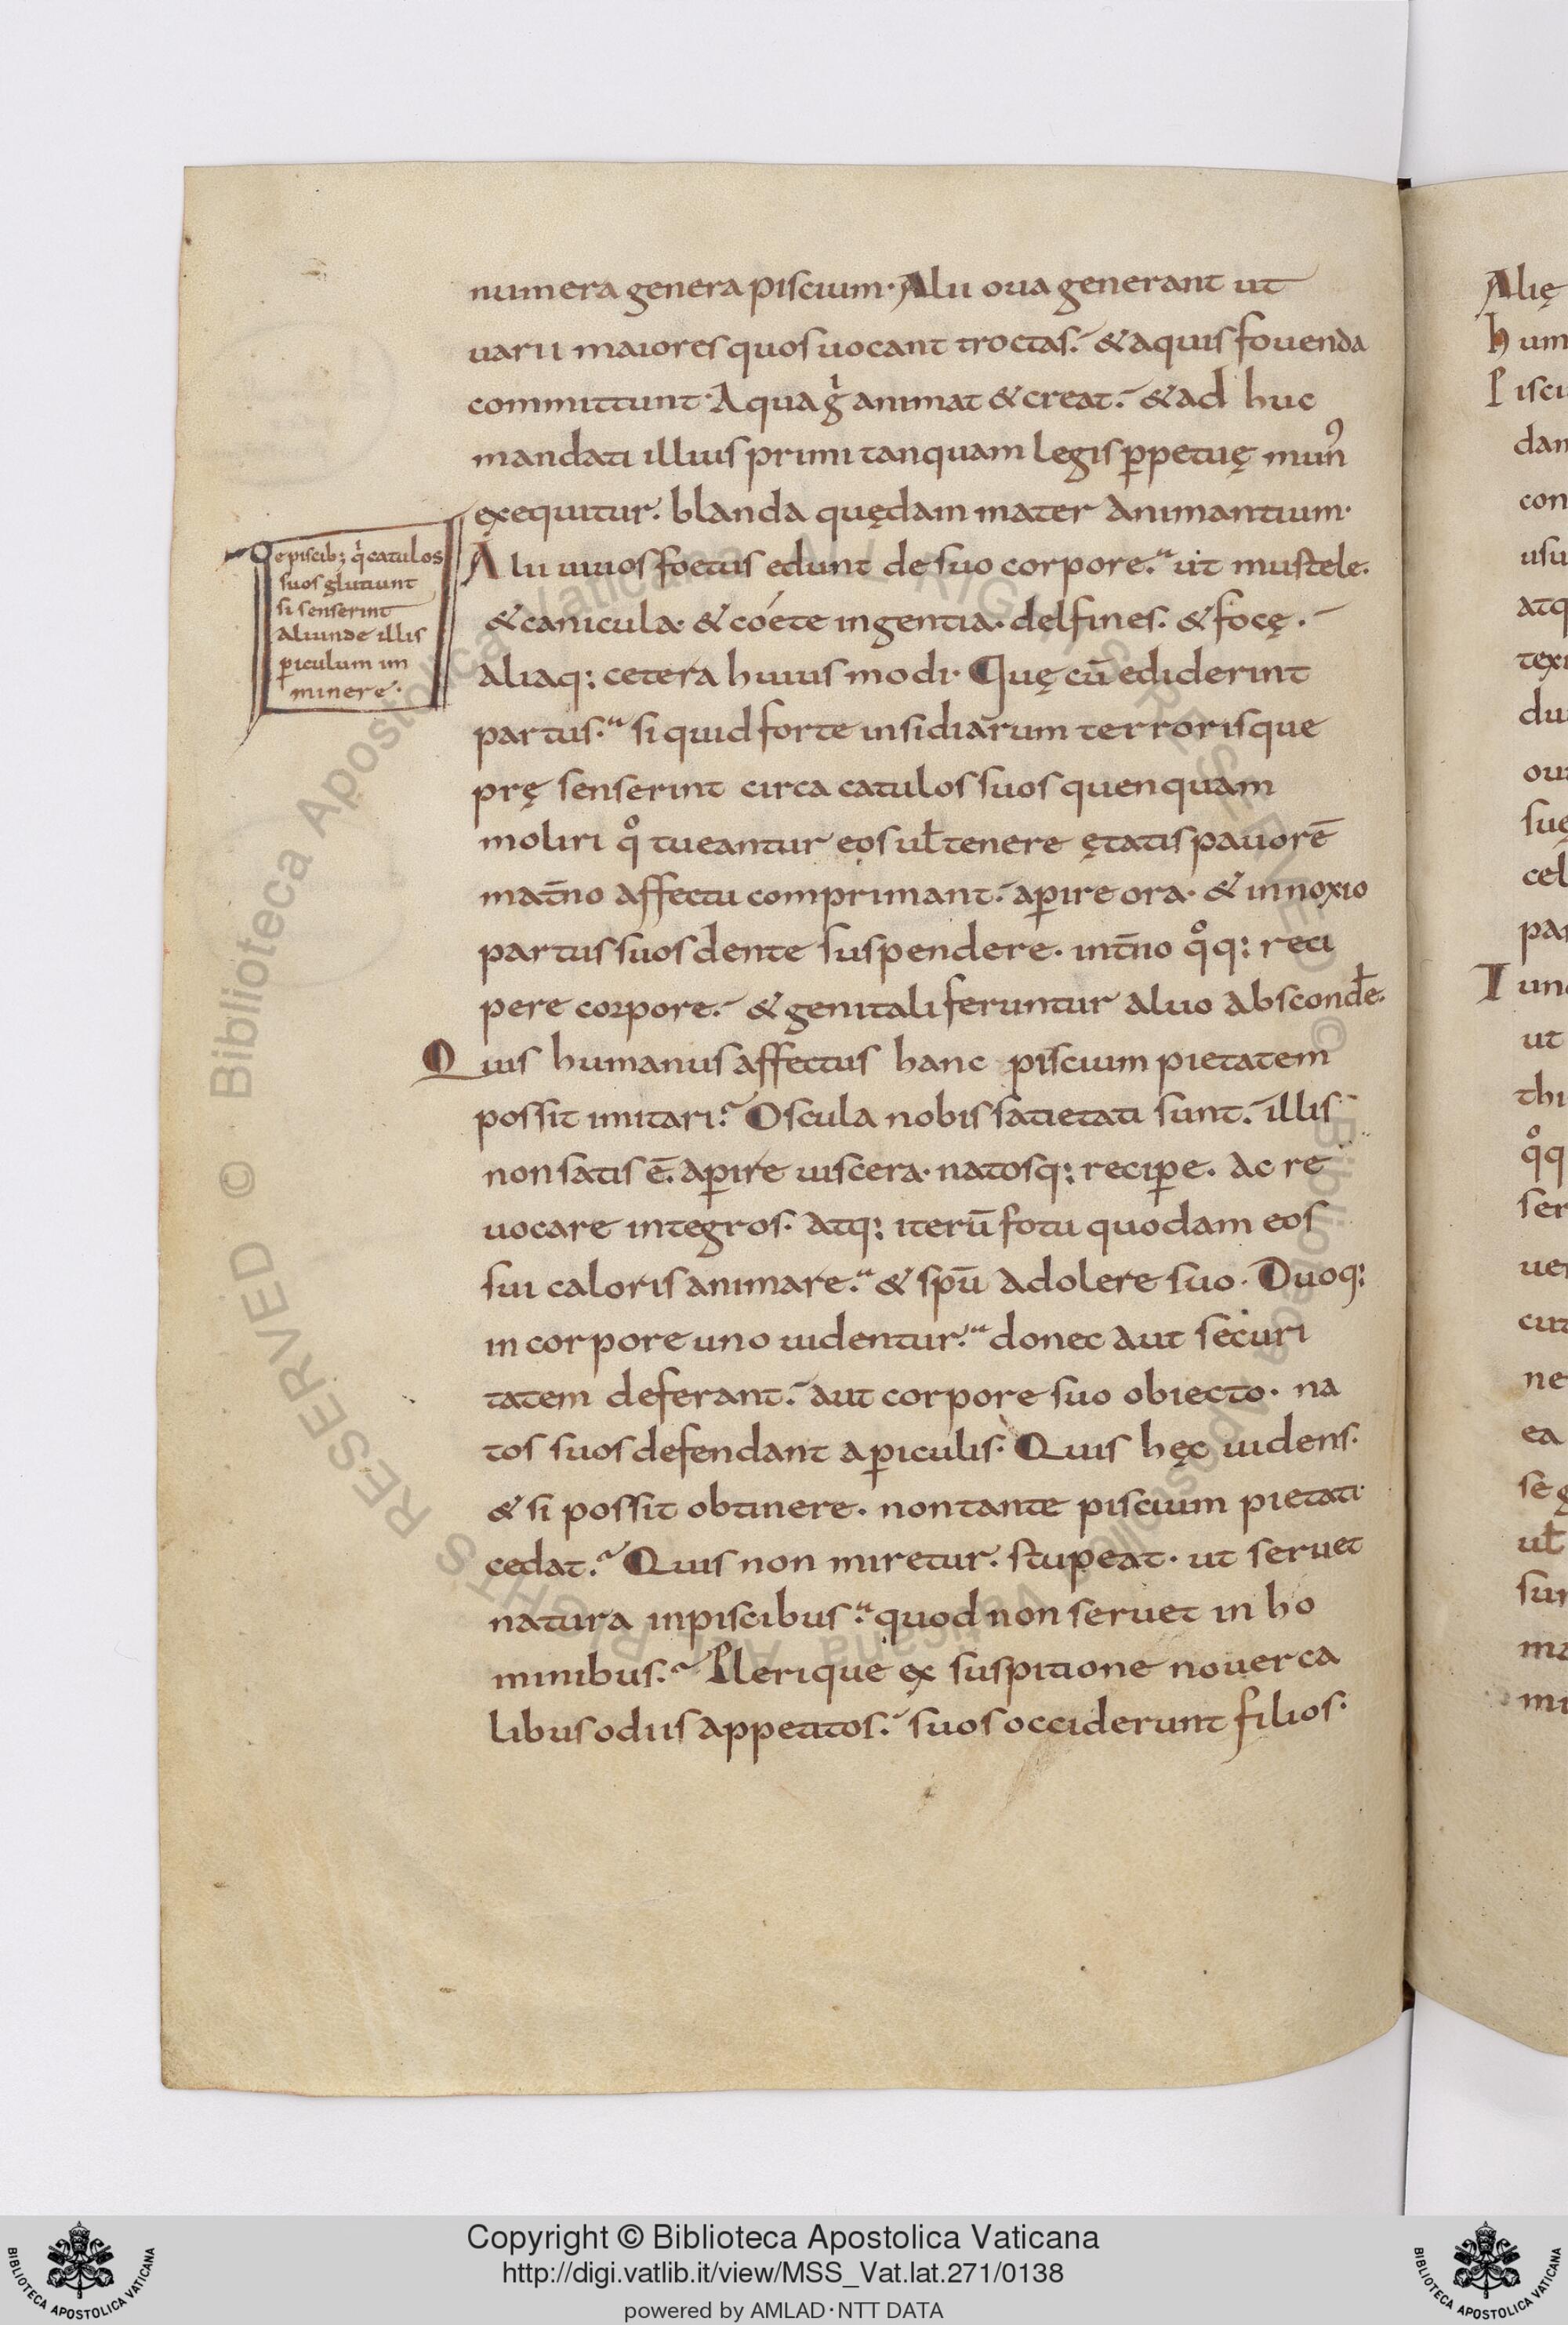 numera genera piscium. Alii oua generant ut
uarii maiores quos uocant troctas. & aquis fouenda
committunt. Aqua gͥ animat & creat. & ad huc
mandati illius primi tanquam legis ꝑpetuę mun᾿
exequitur. blanda quędam mater animantium.
Alii uiuos foetus edunt de suo corpore. ut mustele.
& canicula. & coéte ingentia. delfines. & focę.
aliaq; cetera huius modi. Quę cū ediderint
partus. si quid forte insidiarum terrorisque
prę senserint circa catulos suos quenquam
moliri qͦ tueantur eos uƚ tenere ętatis pauorē
mat̄no affectu comprimant. aꝑire ora. & innoxio
partus suos dente suspendere. int̄no qͦq; reci
pere corpore. & genitali feruntur aluo absconđe.
Quis humanus affectus hanc piscium pietatem
possit imitari? Oscula nobis satietati sunt. illis
non satis ē. aꝑire uiscera. natosq; reciꝑe. ac re
uocare integros. atq; iterū fotu quodam eos
sui caloris animare. & spū adolere suo. Duoq;
in corpore uno uidentur. donec aut securi
tatem deferant. aut corpore suo obiecto. na
tos suos defendant a ꝑiculis. Quis hęc uidens.
& si possit obtinere. non tante piscium pietati
cedat? Quis non miretur. stupeat. ut seruet
natura in piscibus. quod non seruet in ho
minibus? Plerique ex suspitione nouerca
libus odiis appetitos. suos occiderunt filios.
De piscib; qͥ catulos
suos glutiunt
si senserint
aliunde illis
ꝑiculum im
minere.
Alię
hum
Pisci
dam
con
usu
atq
texi
du
oua
suę
cel
par
Tunc
ut
thi
qͦq
ser
uer
cut
ne
ea
se g
uƚ
sun
ma
mi
© Biblioteca Apostolica Vaticana ALL RIGHTS RESERVED © Biblioteca Apostolica Vaticana ALL RIGHTS RESERVED
BIBLIOTECA APOSTOLICA VATICANA
Copyright © Biblioteca Apostolica Vaticana
http://digi.vatlib.it/view/MSS_Vat.lat.271/0138
powered by AMLAD·NTT DATA
BIBLIOTECA APOSTOLICA VATICANA